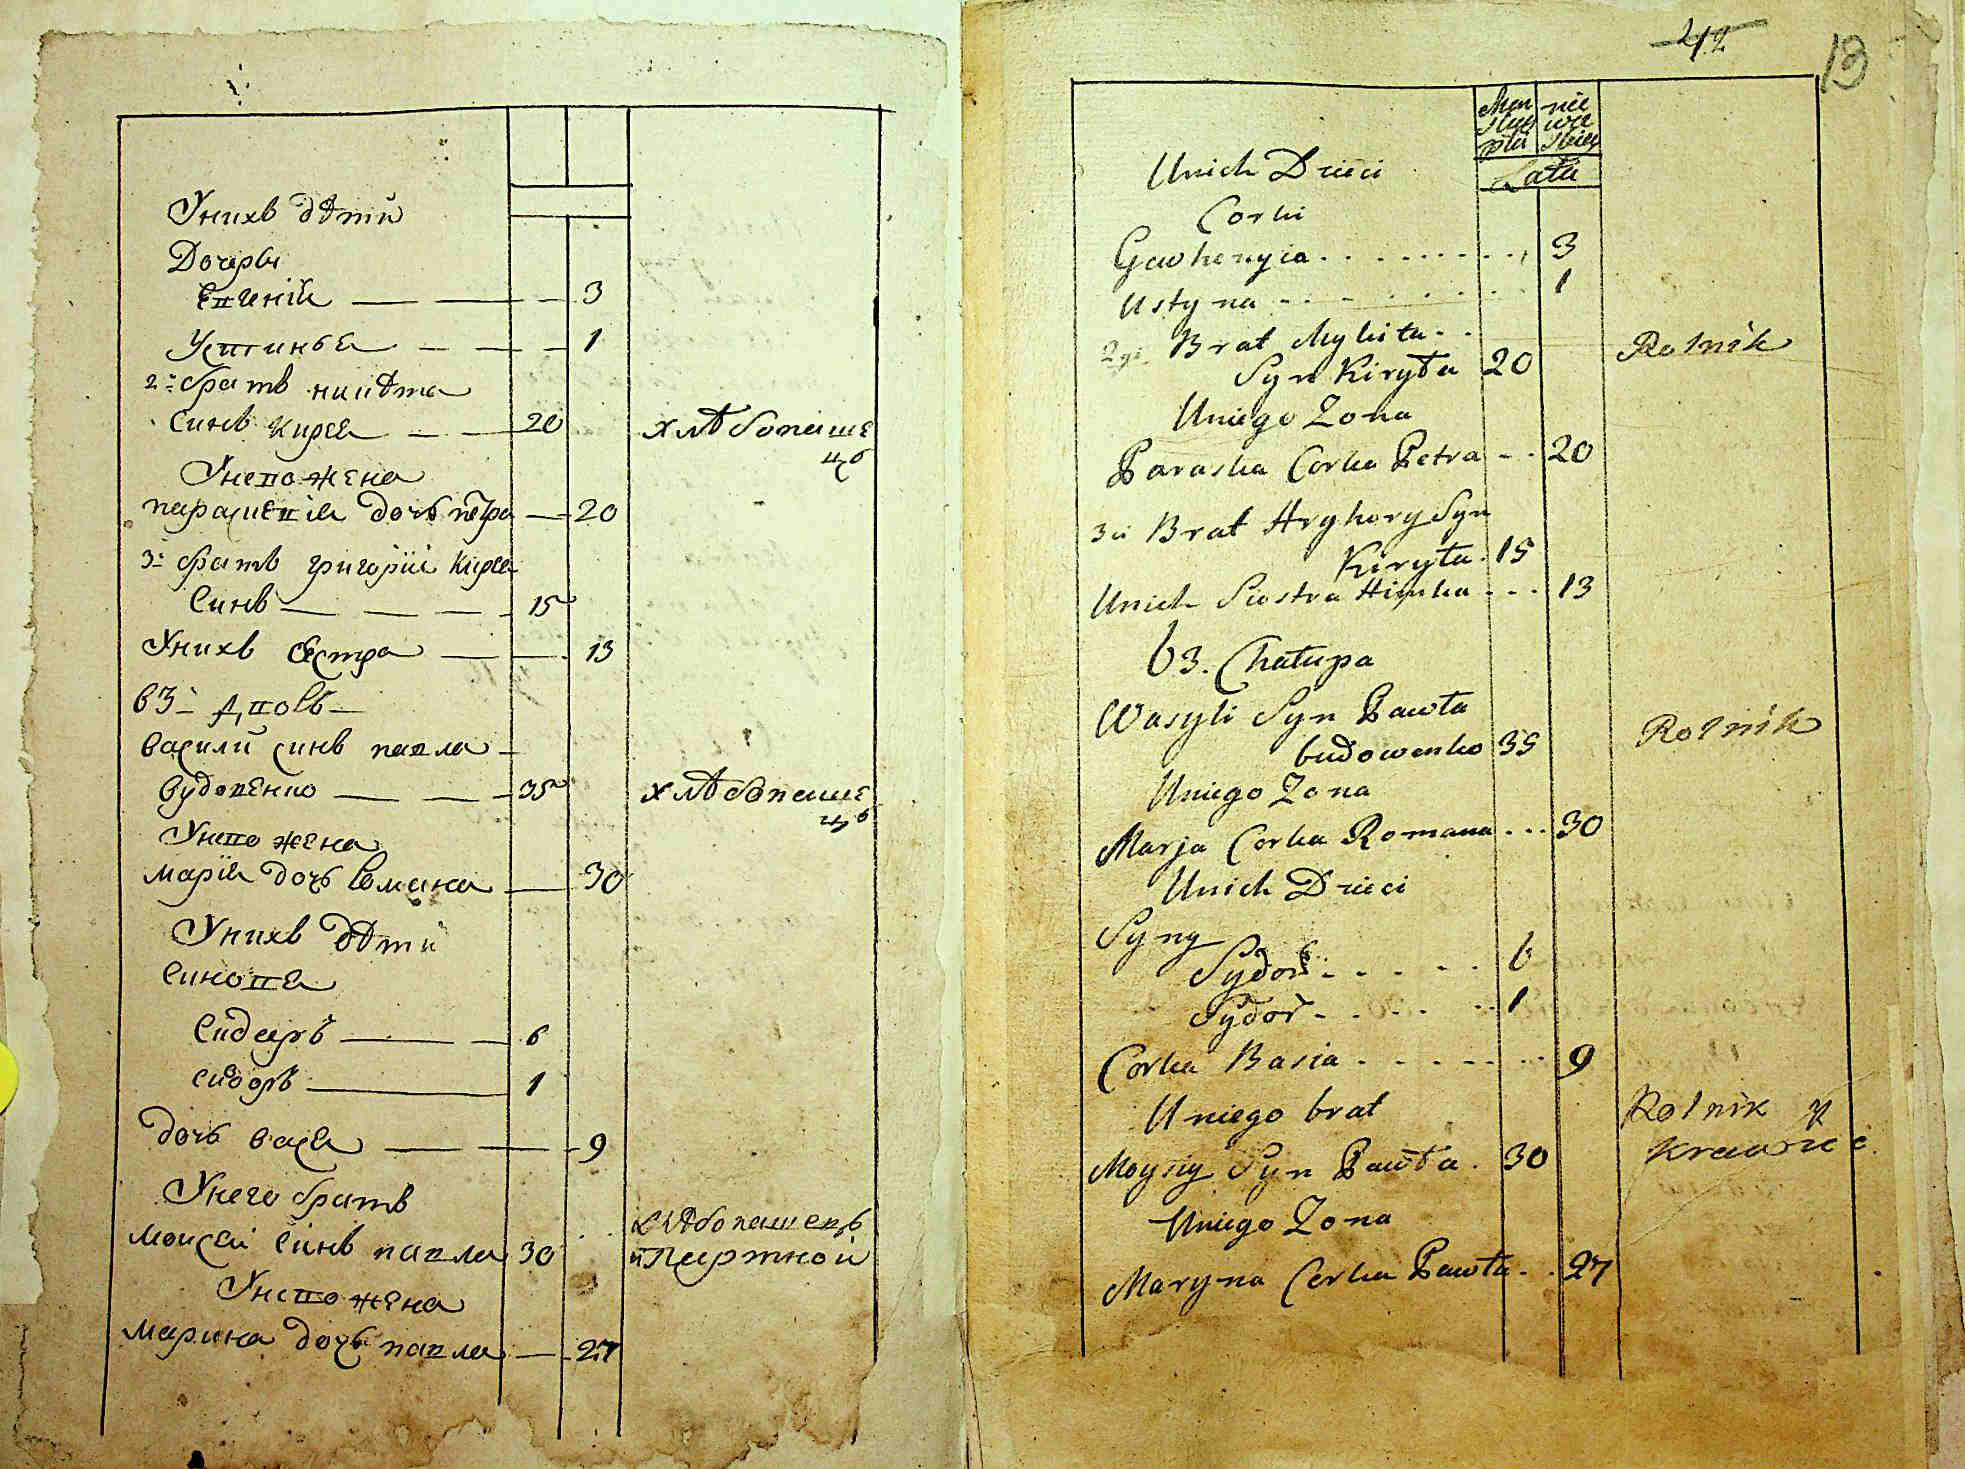 Унихъ дѣти
Дочеры
Евгенїи 3
Устинья 1
2: братъ никѣта
Синъ Кирея 20 хлѣбопаше
цъ
Унево жена
парасцевїя дочъ пѣтра 20
3: братъ григорїй Кирея
Синъ 15
Унихъ сестра 13
63 Двовъ
василий синъ павла
вудовенко 35 хлѣбопаше
цъ
Унево жена
марїя дочъ Романа 30
Унихъ дѣти
Синовя
Сидеръ 6
сидоръ 1
дочъ вася 9
Унего братъ
моисей синъ павла 30 хлѣбопашецъ
и Партной
Унево жена
марина дочъ павла 27
42
13
Men nie
skey wie
płci skiey
Lata
Unich Dzieci
Corki
Gewhenyia 3
Ustyna 1
2gi Brat Mykita
Syn Kiryła 20 Rolnik
Uniego Zona
Paraska Corka Petra 20
3ci Brat Hryhory Syn
Kiryła 15
Unich Siostra Himka 13
63. Chałupa
Wasyli Syn Pawła
budowenko 35 Rolnik
Uniego Zona
Marja Corka Romana 30
Unich Dzieci
Syny
Sydor 6
Sydor 1
Corka Basia 9
Uniego brat Rolnik y
Moysiy Syn Pawła 30 Krawiec
Uniego Zona
Maryna Corka Pawła 27